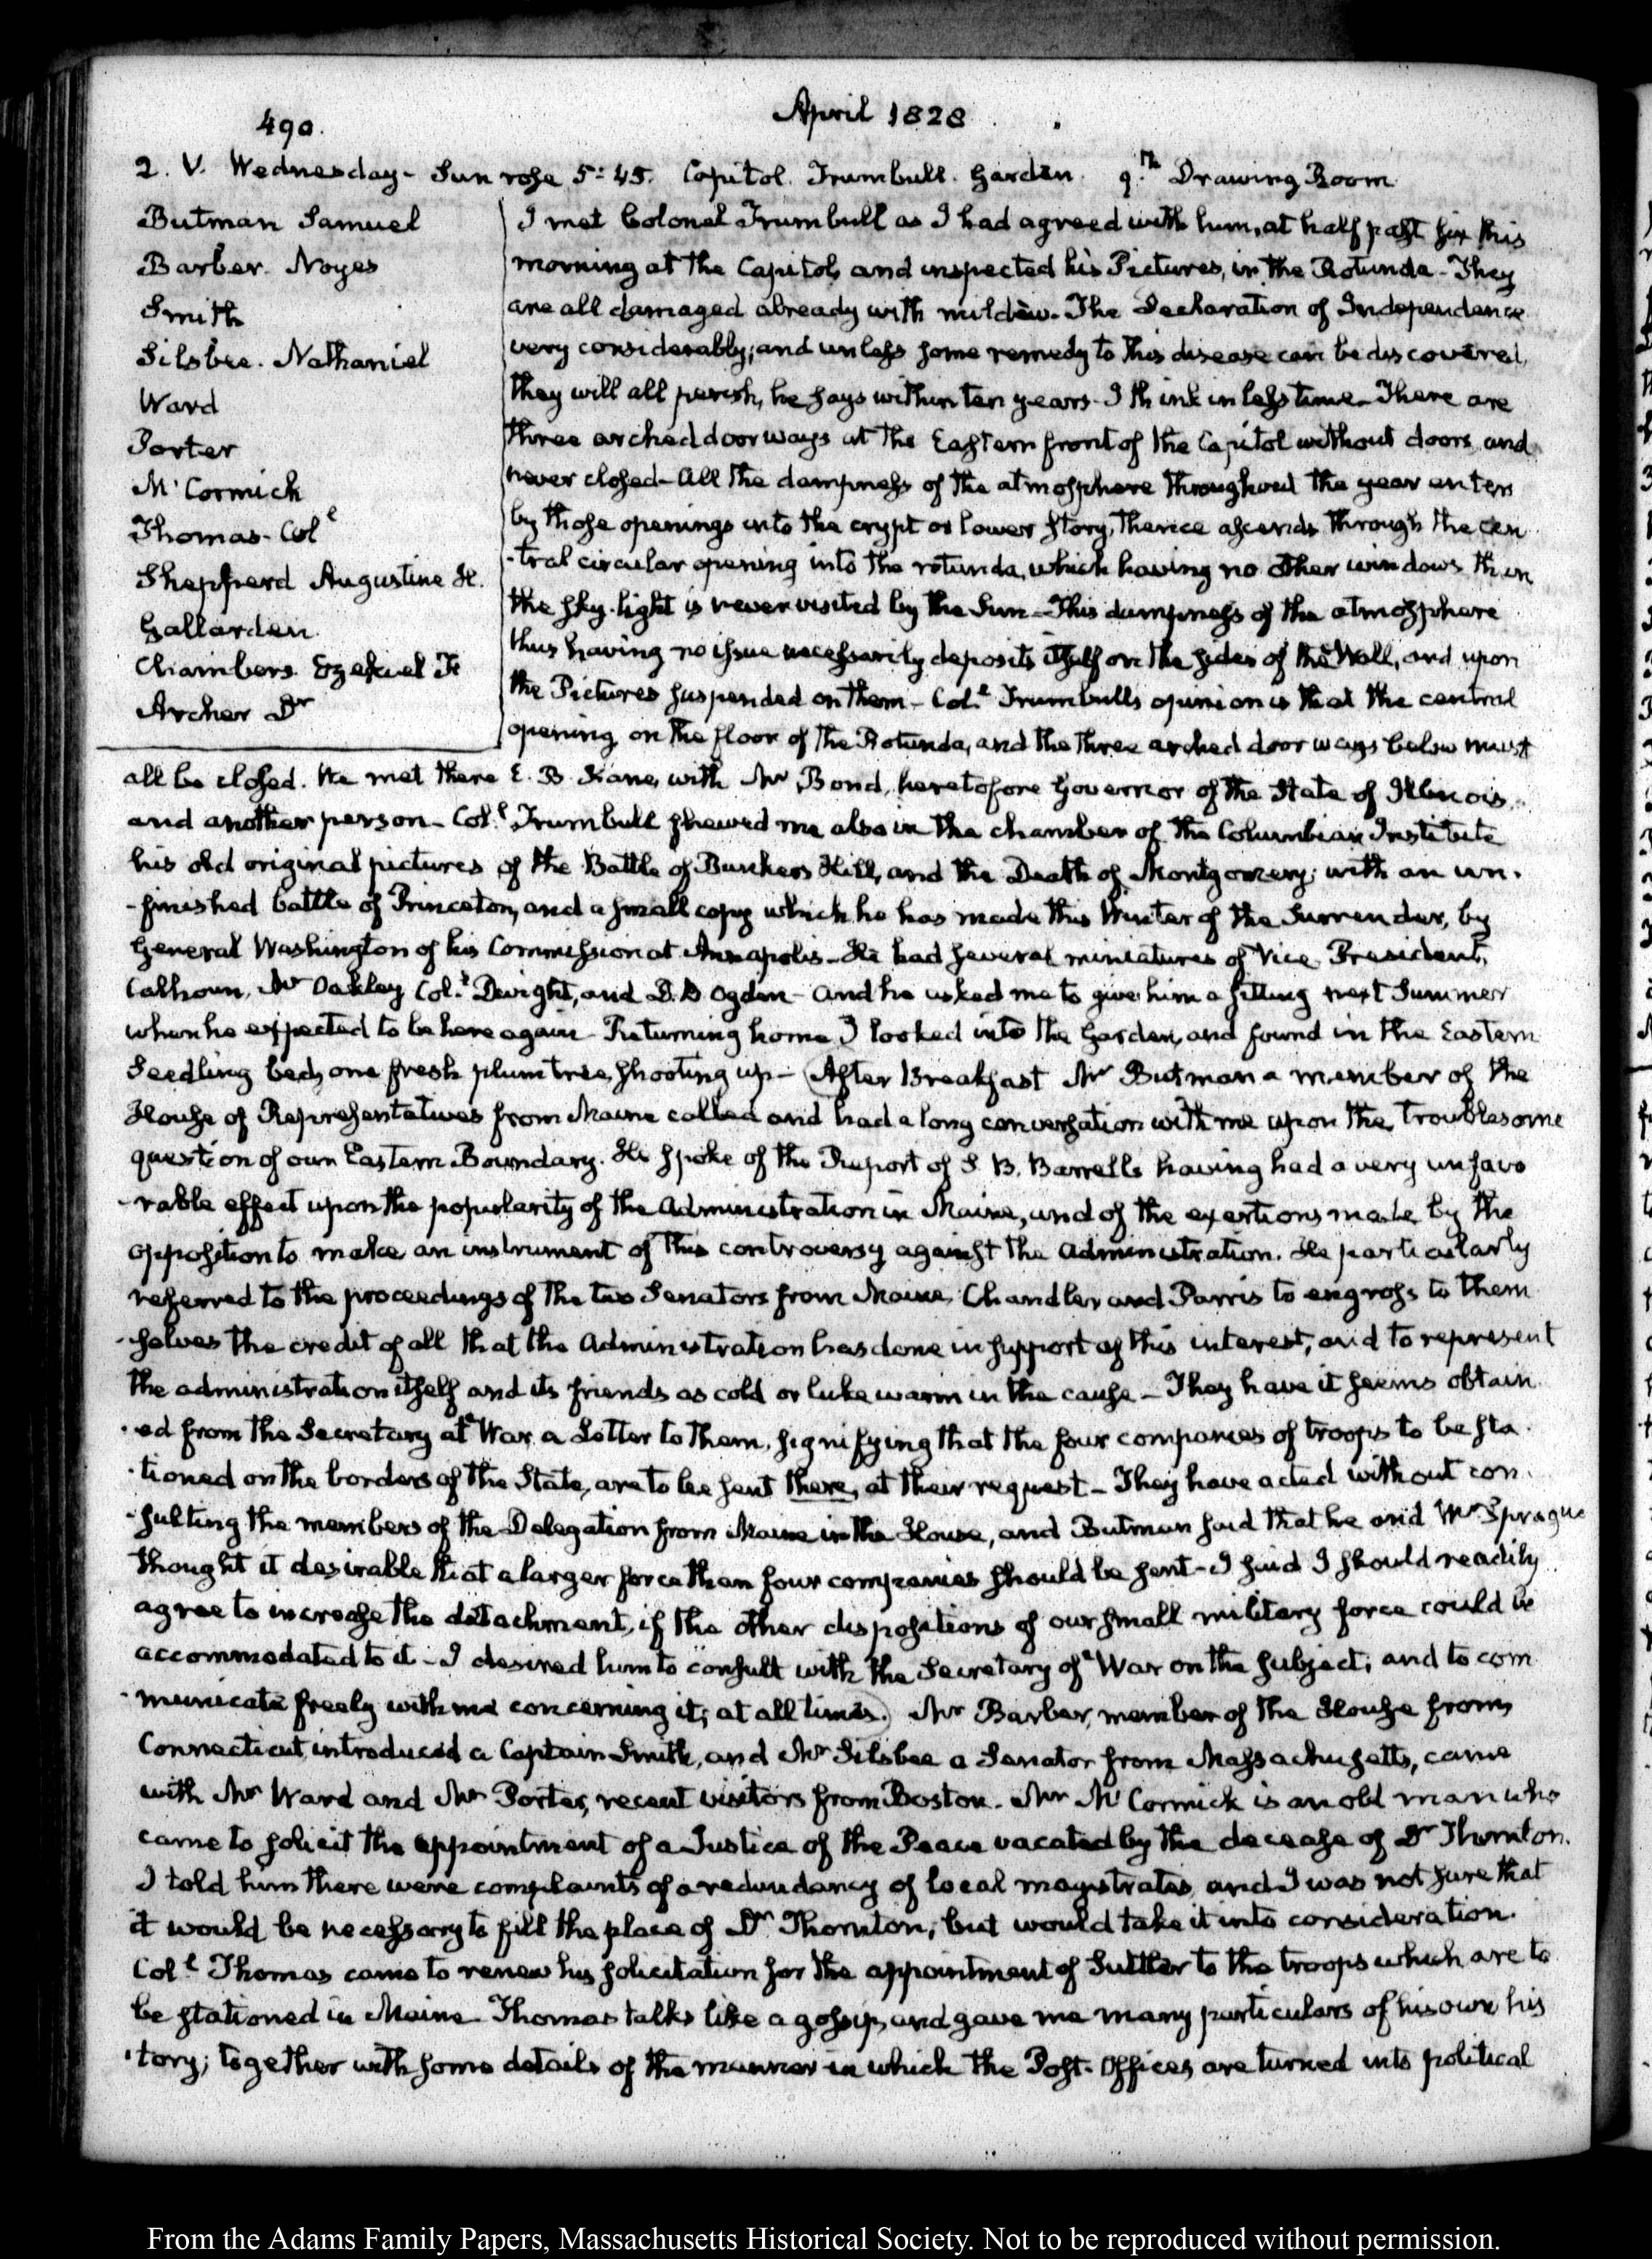 490.
April 1828
2. V. Wednesday - Sun rose 5:45. Capitol. Trumbull. Garden. 9.th Drawing Room
Butman Samuel
Barber. Noyes
Smith
Silsbee. Nathaniel
Ward
Porter
Mc.Cormick
Thomas - Coll
Shepperd Augustine H.
Gallarden
Chambers Ezekiel F.
Archer Dr
I met Colonel Trumbull as I had agreed with him, at half past six this
morning at the Capitol, and inspected his Pictures, in the Rotunda - They
are all damaged already with mildew. The Declaration of Independence
very considerably; and unless some remedy to this disease can be discovered,
they will all perish, he says within ten years - I think in less time - There are
three arched doorways at the Eastern front of the Capitol without doors, and
never closed - All the dampness of the atmosphere throughout the year enters
by those openings into the crypt or lower story, thence ascends through the cen
-tral circular opening into the rotunda, which having no other windows than
the sky-light is never visited by the Sun - This dampness of the atmosphere
thus having no issue necessarily deposits itself on the sides of the Wall, and upon
the Pictures suspended on them - Col.l Trumbulls opinion is that the central
opening on the floor of the Rotunda, and the three arched doorways below must
all be closed. We met there E. B. Kane, with Mr Bond, heretofore Governor of the State of Illinois,
and another person - Col.l Trumbull shewed me also in the chamber of the Columbian Institute
his old original pictures of the Battle of Bunkers Hill, and the Death of Montgomery; with an un-
-finished battle of Princeton, and a small copy which he has made this Winter of the Surrender, by
General Washington of his Commission at Annapolis - He had several miniatures of Vice President,
Calhoun, Mr Oakley Col.l Dwight, and D. B Ogden - and he asked me to give him a sitting next Summer
when he expected to be here again - Returning home I looked into the Garden, and found in the Eastern
Seedling bed, one fresh plum tree, shooting up - (After Breakfast Mr Butman a member of the
House of Representatives from Maine called and had a long conversation with me upon the troublesome
question of our Eastern Boundary. He spoke of the Report of S. B. Barrells having had a very unfavo
-rable effect upon the popularity of the Administration in Maine, and of the exertions made by the
opposition to make an instrument of this controversy against the Administration. He particularly
referred to the proceedings of the two Senators from Maine, Chandler and Parris to engross to them
-selves the credit of all that the Administration has done in support of this interest, and to represent
the administration itself and its friends as cold or lukewarm in the cause - They have it seems obtain
-ed from the Secretary at War a Letter to them, signifying that the four companies of troops to be sta-
-tioned on the borders of the State, are to be sent there, at their request - They have acted without con-
-sulting the members of the Delegation from Maine in the House, and Butman said that he and Mr Sprague
thought it desirable that a larger force than four companies should be sent - I said I should readily
agree to increase the detachment, if the other dispositions of our small military force could be
accommodated to it - I desired him to consult with the Secretary of War on the subject; and to com
-municate freely with me concerning it; at all times.) Mr Barber, member of the House from
Connecticut, introduced a Captain Smith, and Mr Silsbee a Senator from Massachusetts, came
with Mr Ward and Mr Porter, recent visitors from Boston. Mr McCormick is an old man who
came to solicit the appointment of a Justice of the Peace vacated by the decease of Dr Thornton.
I told him there were complaints of a redundancy of local magistrates, and I was not sure that
it would be necessary to fill the place of Dr Thornton, but would take it into consideration.
Col.l Thomas came to renew his solicitation for the appointment of Sutler to the troops which are to
be stationed in Maine. Thomas talks like a gossip, and gave me many particulars of his own his
-tory; together with some details of the manner in which the Post-Offices are turned into political
From the Adams Family Papers, Massachusetts Historical Society. Not to be reproduced without permission.